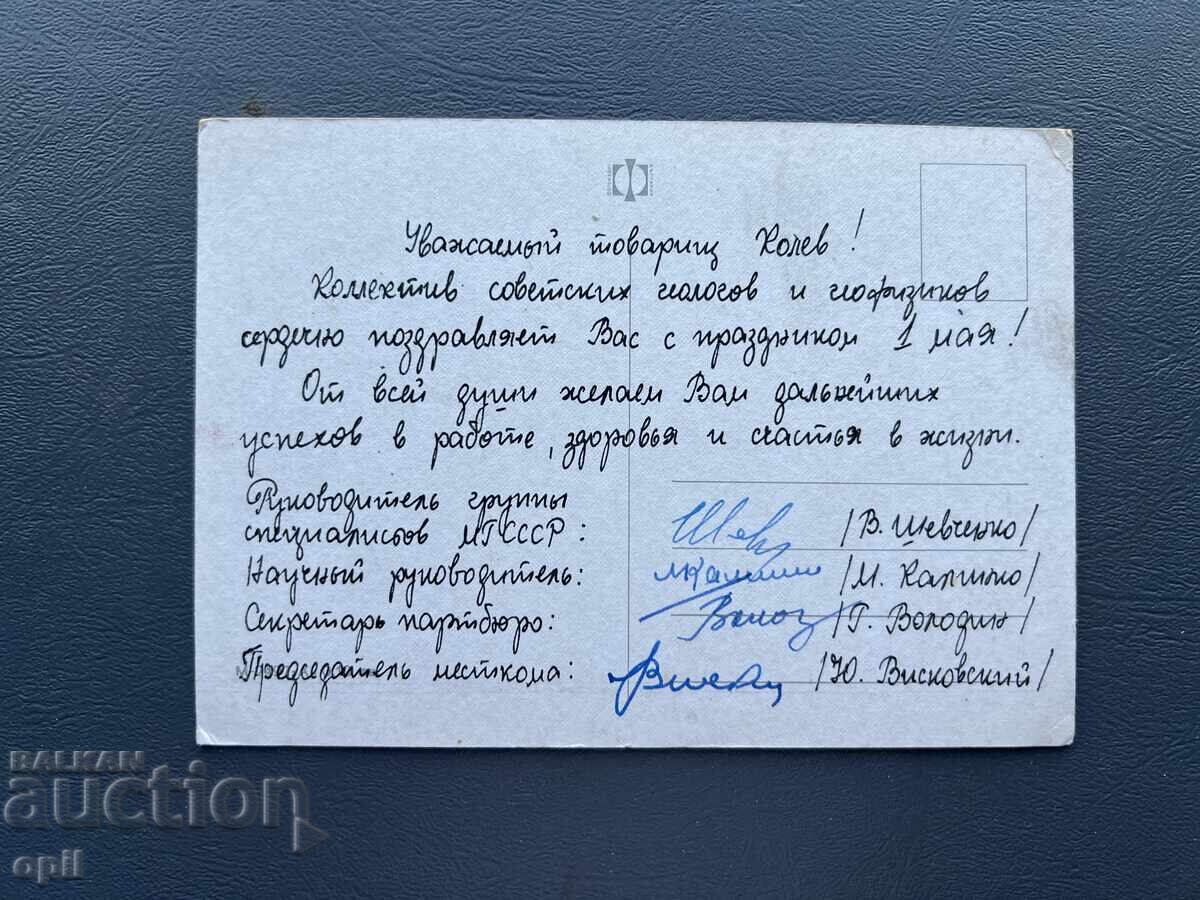 Уважаемый товарищ Колев!
Коллектив советских геологов и геофизиков
сердечно поздравляет Вас с праздником 1 мая!
От всей души желаем Вам дальнейших
успехов в работе, здоровья и счастья в жизни.
Руководитель группы
специалистов МГ СССР: /В. Шевченко/
Научный руководитель: /М. Калинко/
Секретарь партбюро: /Г. Володин/
Председатель месткома: /Ю. Висковский/
BALKAN
auction
opil